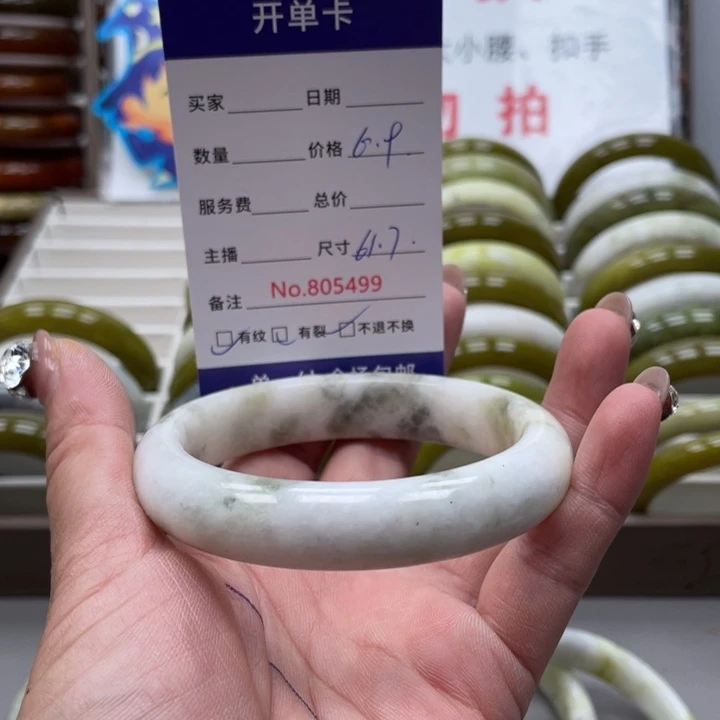 开单卡
买家 日期
数量 价格 6.9
服务费 总价
主播 尺寸 61.7
备注 No.805499
有纹 有裂 不退不换
大小腰、扣手
勿拍